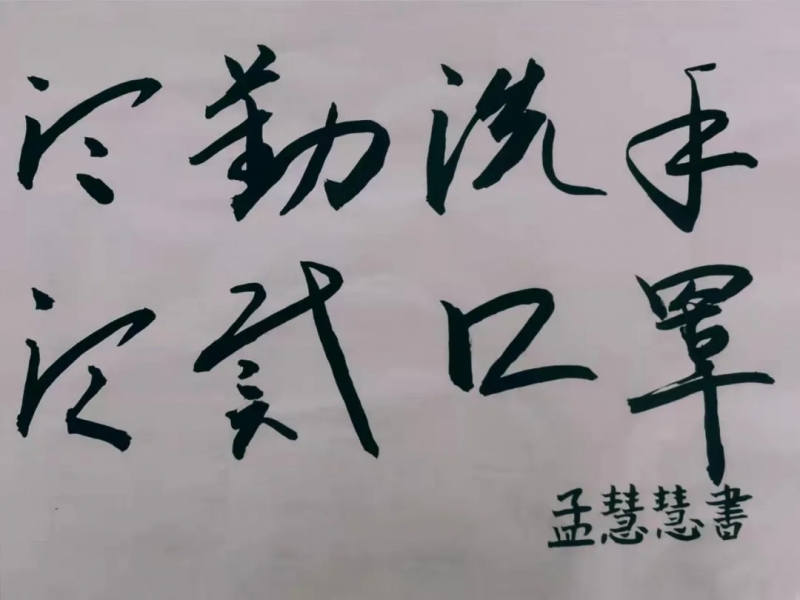 应勤洗手
应戴口罩
孟慧慧書